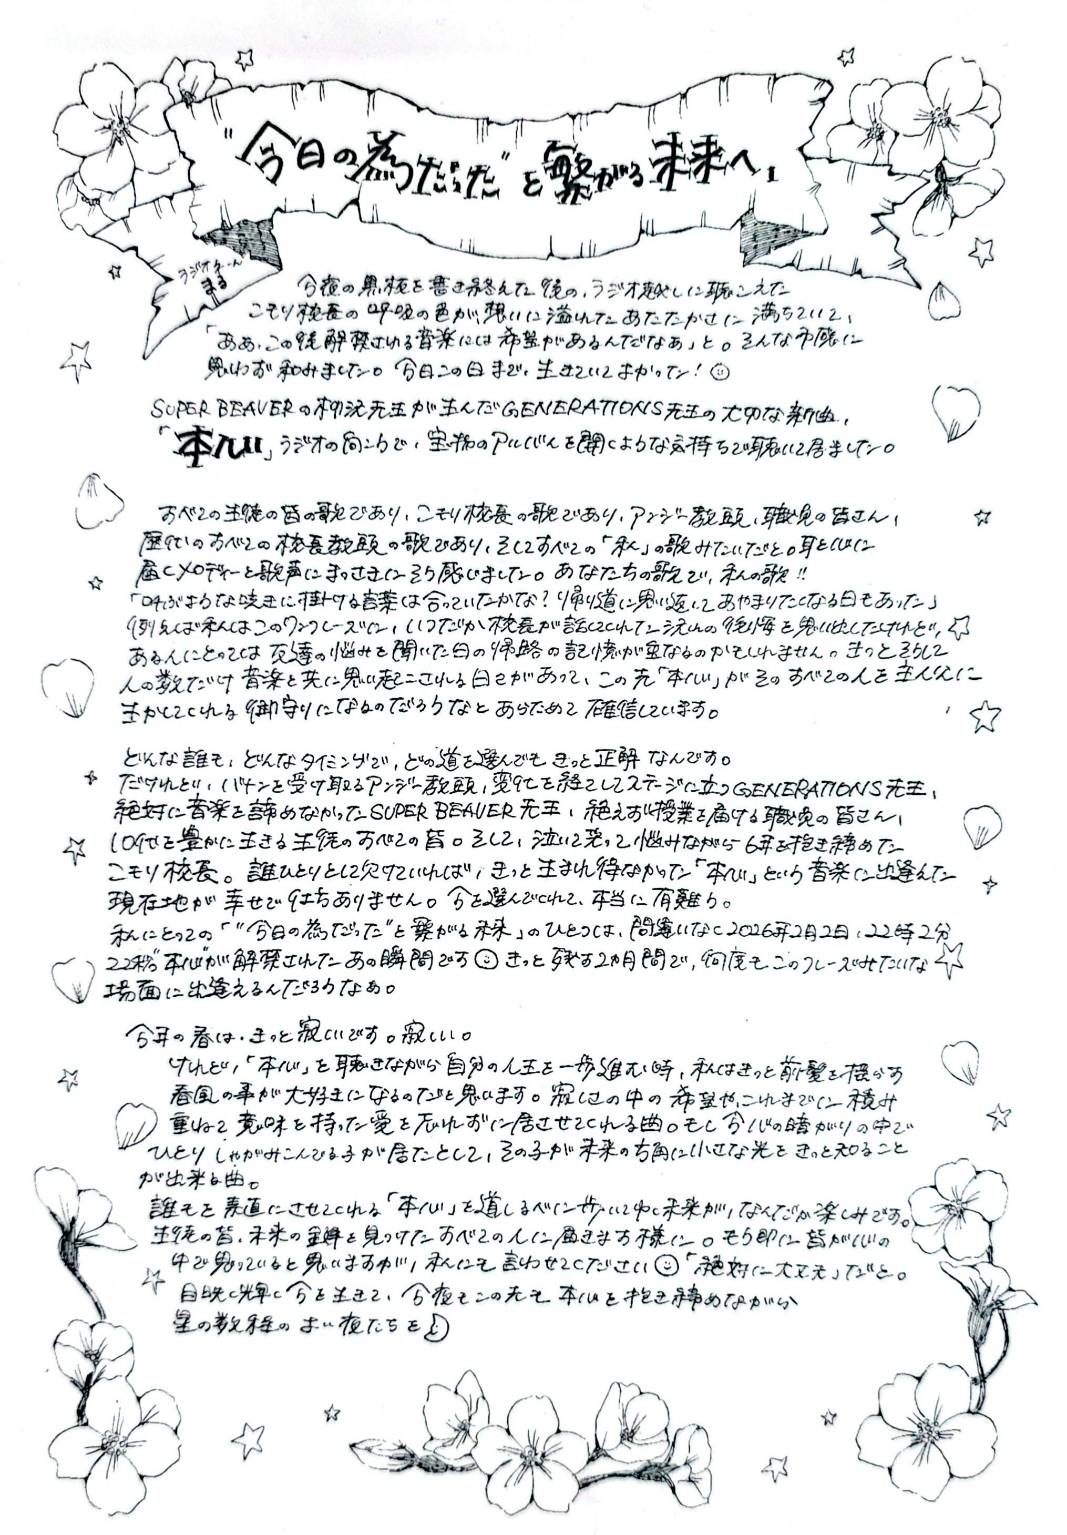 "今日の為だった"と繋がる未来へ、
ラジオネーム
まる
今夜の黒板を書き終えた後の、ラジオ越しに聴こえた
こもり校長の呼吸の色が、想いに溢れたあたたかさに満ちていて、
「ああ、この後解禁される音楽には希望があるんだなあ」と。そんな予感に
思わず和みました。今日この日まで、生きていてよかった！
SUPER BEAVERの柳沢先生が生んだGENERATIONS先生の大切な新曲、
「本心」ラジオの向こうで、宝物のアルバムを開くような気持ちで聴いて居ました。
すべての生徒の皆の歌であり、こもり校長の歌であり、アンジー教頭、職員の皆さん、
歴代のすべての校長教頭の歌であり、そしてすべての「私」の歌みたいだと。耳と心に
届くメロディーと歌声にまっさきにそう感じました。あなたちの歌で、私の歌!!
「呼ぶような呟きに掛ける言葉は合っていたかな？帰り道に思い返してあやまりたくなる日もあった」
例えば私はこのワンフレーズに、いつだか校長が話してくれた後悔を思い出したけれど、
ある人にとっては友達の悩みを聞いた日の帰路の記憶が重なるのかもしれません。きっとそうして
人の数だけ音楽と共に思い起こされる日々があって、この先「本心」がそのすべての人を主人公に
生かしてくれる御守りになるのだろうなとあらためて確信しています。
どんな誰も、どんなタイミングで、どの道を選んでもきっと正解なんです。
だけれど、バトンを受け取るアンジー教頭、変化を経てしてステージに立つGENERATIONS先生、
絶対に音楽を諦めなかったSUPER BEAVER先生、絶えず授業を届ける職員の皆さん、
10代を豊かに生きる生徒のすべての皆。そして、泣いて笑って悩みながら6年を抱き締めた
こもり校長。誰ひとりとして欠けていれば、きっと生まれ得なかった「本心」という音楽に出逢えた
現在地が幸せで仕方ありません。今を選んでくれて、本当に有難う。
私にとっての「"今日の為だった"と繋がる未来」のひとつは、間違いなく2026年2月2日、22時2分
22秒"本心"が解禁されたあの瞬間です きっと残す2カ月間で、何度もこのフレーズみたいな
場面に出逢えるんだろうなぁ。
今年の春は、きっと寂しいです。寂しい。
けれど、「本心」を聴きながら自分の人生を一歩進む時、私はきっと前髪を揺らす
春風の事が大好きになるのだと思います。寂しさの中の希望や、これまでに積み
重ねて意味を持った愛を忘れずに居させてくれる曲。もし今心の暗がりの中で
ひとりしゃがみこんでる子が居たとして、その子が未来の方角に小さな光をきっと知ること
が出来る曲。
誰もを素直にさせてくれる「本心」を道しるべに歩いてゆく未来が、なんだか楽しみです。
生徒の皆、未来の鍵を見つけたすべての人に届きます様に。もう既に皆が心の
中で思っていると思いますが、私にも言わせてください「絶対に大丈夫」だと。
目映く輝く今を生きて、今夜もこの先も本心を抱き締めながら
星の数程のよい夜たちを